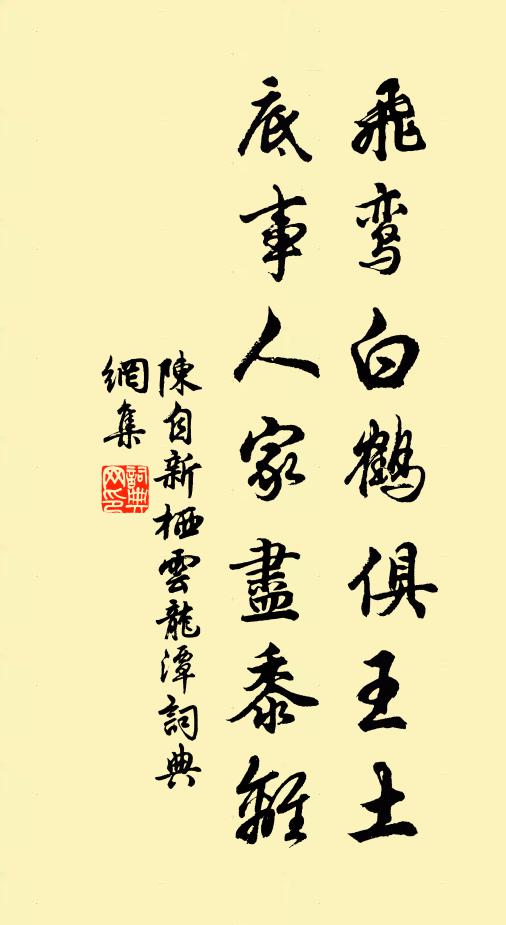 飛鸾白鶴俱王土
底事人家盡黍離
陳自新栖雲龍潭詞典
網集
詞典
网印